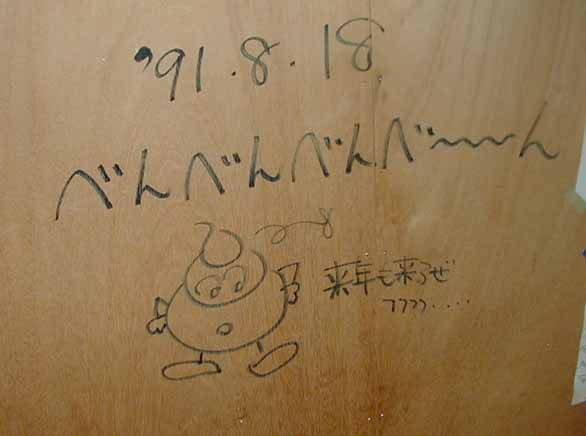 '91.8.18
べんべんべんべ〜〜ん
来年も来るぜ
フフフフ.....